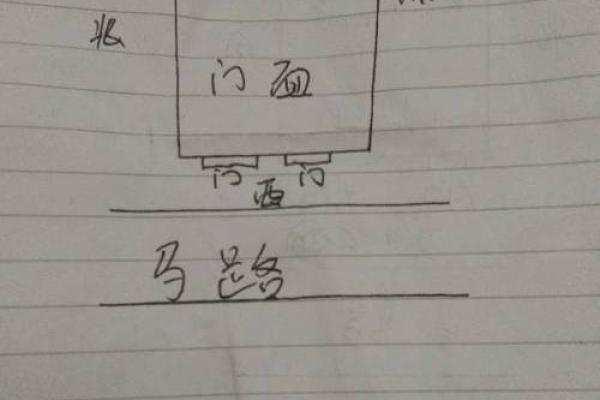 北
门面
门 门
西
马路